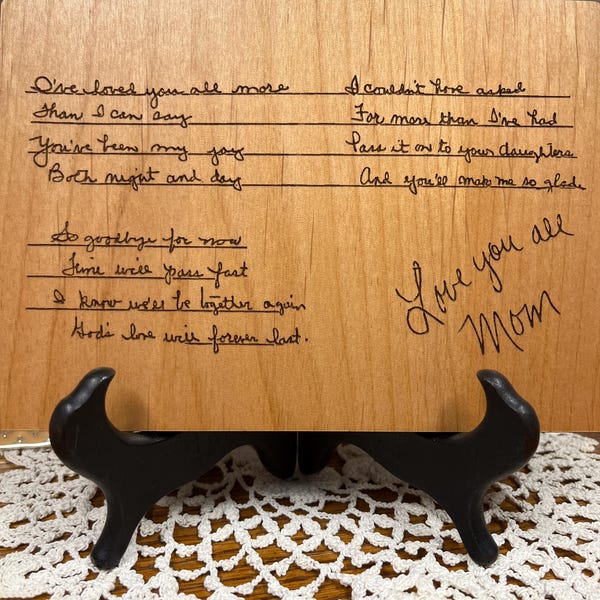 I've loved you all more
Than I can say
You've been my joy
Both night and day
I couldn't have asked
For more than I've had
Pass it on to your daughters
And you'll make me so glad
So goodbye for now
Time will pass fast
I know we'll be together again
God's love will forever last.
Love you all
Mom